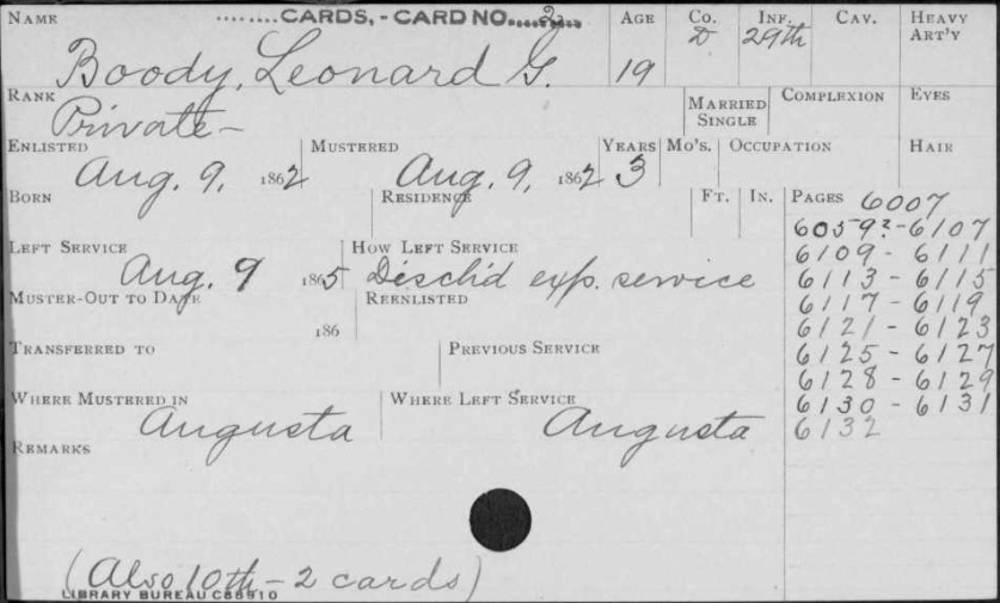 NAME ........CARDS, - CARD NO....2..... AGE CO. INF. CAV. HEAVY ART'Y
Boody, Leonard G. 19 D 29th
RANK MARRIED SINGLE COMPLEXION EYES
Private -
ENLISTED MUSTERED YEARS MO'S. OCCUPATION HAIR
Aug. 9, 1862 Aug. 9, 1862 3
BORN RESIDENCE FT. IN. PAGES 6007
6059?-6107
LEFT SERVICE HOW LEFT SERVICE 6109 - 6111
Aug. 9 1865 Disch'd exp. service 6113 - 6115
MUSTER-OUT TO DATE REENLISTED 6117 - 6119
186 6121 - 6123
TRANSFERRED TO PREVIOUS SERVICE 6125 - 6127
6128 - 6129
WHERE MUSTERED IN WHERE LEFT SERVICE 6130 - 6131
Augusta Augusta 6132
REMARKS
(Also 10th - 2 cards)
LIBRARY BUREAU C88910